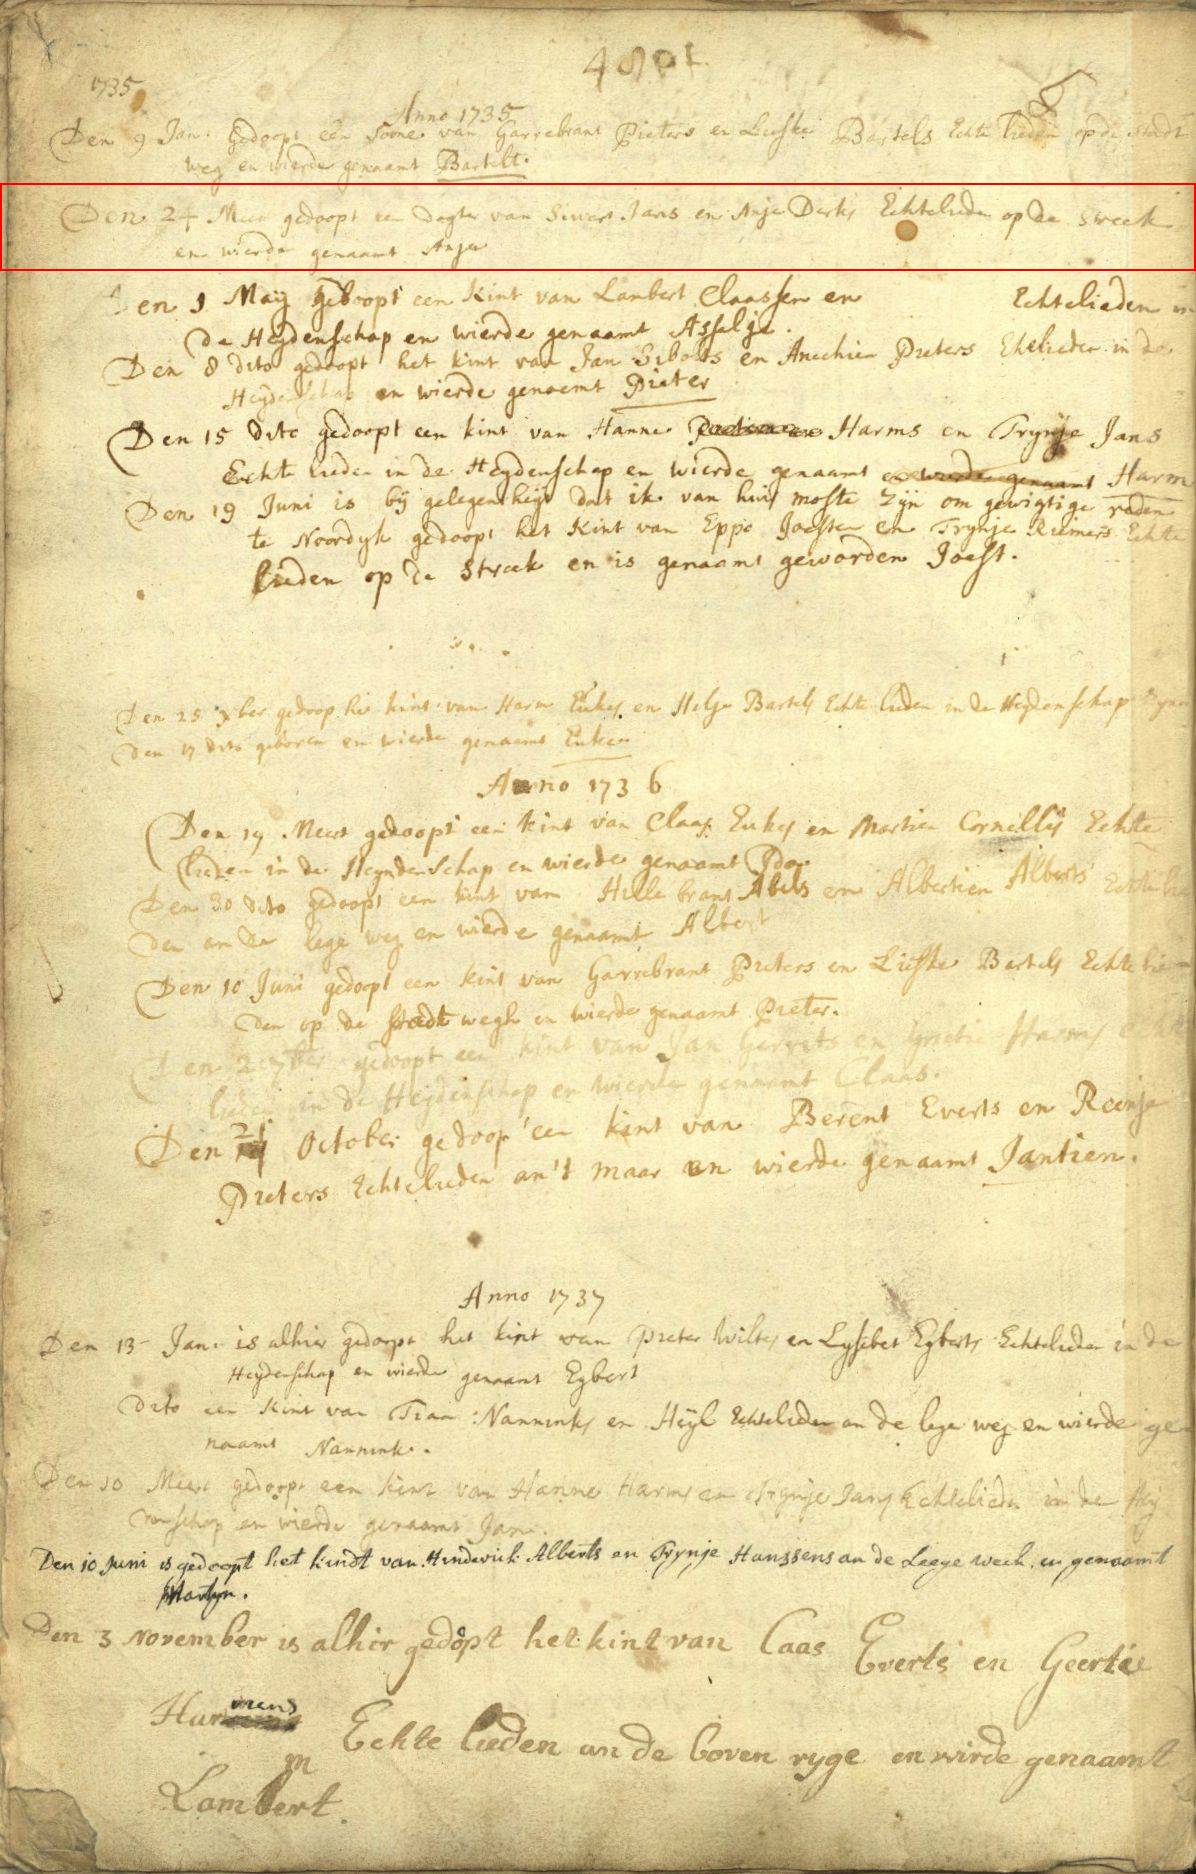 1735
Anno 1735
Den 9 Jan: gedoopt een soone van Garrebrant Pieters en Lieske Bartels Echte lieden op de stadt
weg en wierde genaamt Bartelt.
Den 24 Meert gedoopt een dogter van Siwert Jans en Anje Derks Echtelieden op de streek
en wierde genaamt Anje
Den 1 Maij gedoopt een Kint van Lambert Claassen en Echtelieden in
de Heijdenschap en wierde genaamt Asselje.
Den 8 dito gedoopt het kint van Jan Sibolts en Anechien Pieters Ehelieden in de
Heydenschap en wierde genaemt Pieter
Den 15 dito gedoopt een kint van Hanne Harms en Trijntje Jans
Echte lieden in de Heydenschap en wierde genaamt en wierde genaamt Harm
Den 19 Juni is bij gelegentheijt dat ik van huis moste zijn om gewigtige reden
te Noordyk gedoopt het Kint van Eppo Joesten en Trynje Riemers Echte
lieden op de Streek en is genaamt geworden Joest.
Den 25 ber gedoopt kint van Harm Eukes en Helje Bartels Echte lieden in de Heydenschap
den 17 dito geboren en wierde genaamt Euke
Anno 1736
Den 19 Meert gedoopt een kint van Claas Eukes en Martien Cornellis Echte
lieden in de Heyndenschap en wierde genaamt
Den 30 dito gedoopt een kint van Hillebrant Abels en Albertien Alberts Echte lie
den an de lege weg en wierde genaamt Albert
Den 10 Junii gedoopt een kint van Garrebrant Pieters en Lieske Bartels Echte lie
den op de stadt wegh en wierde genaamt Pieter.
Den 2 7ber gedoopt een kint van Jan Gerrits en Grietie Harms Echte
lieden in de Heijdenschap en wierde genaamt Claas.
Den 21 October gedoop een kint van Berent Everts en Reenje
Pieters Echtelieden an't maar en wierde genaamt Jantien.
Anno 1737
Den 13 Jan: is alhier gedoopt het kint van Pieter Wiltes en Lysebet Egberts Echtelieden in de
Heydenschap en wierde genaamt Egbert
Dito een Kint van Tiaa Nanninks en Heijl Echtelieden an de lege weg en wierde ge
naamt Nannink.
Den 10 Meert gedoopt een kint van Hanne Harms en Trijntje Jans Echtelieden in de Hey
denschap en wierde genaamt Jan.
Den 10 Juni is gedoopt het kindt van Hinderick Alberts en Trynje Hanssens an de Leege weeh en genaamt
Martyn.
Den 3 November is alhir gedopt het kint van Caas Everts en Geertie
Harmens Echte lieden an de boven ryge en wirde genaamt
Lambert.